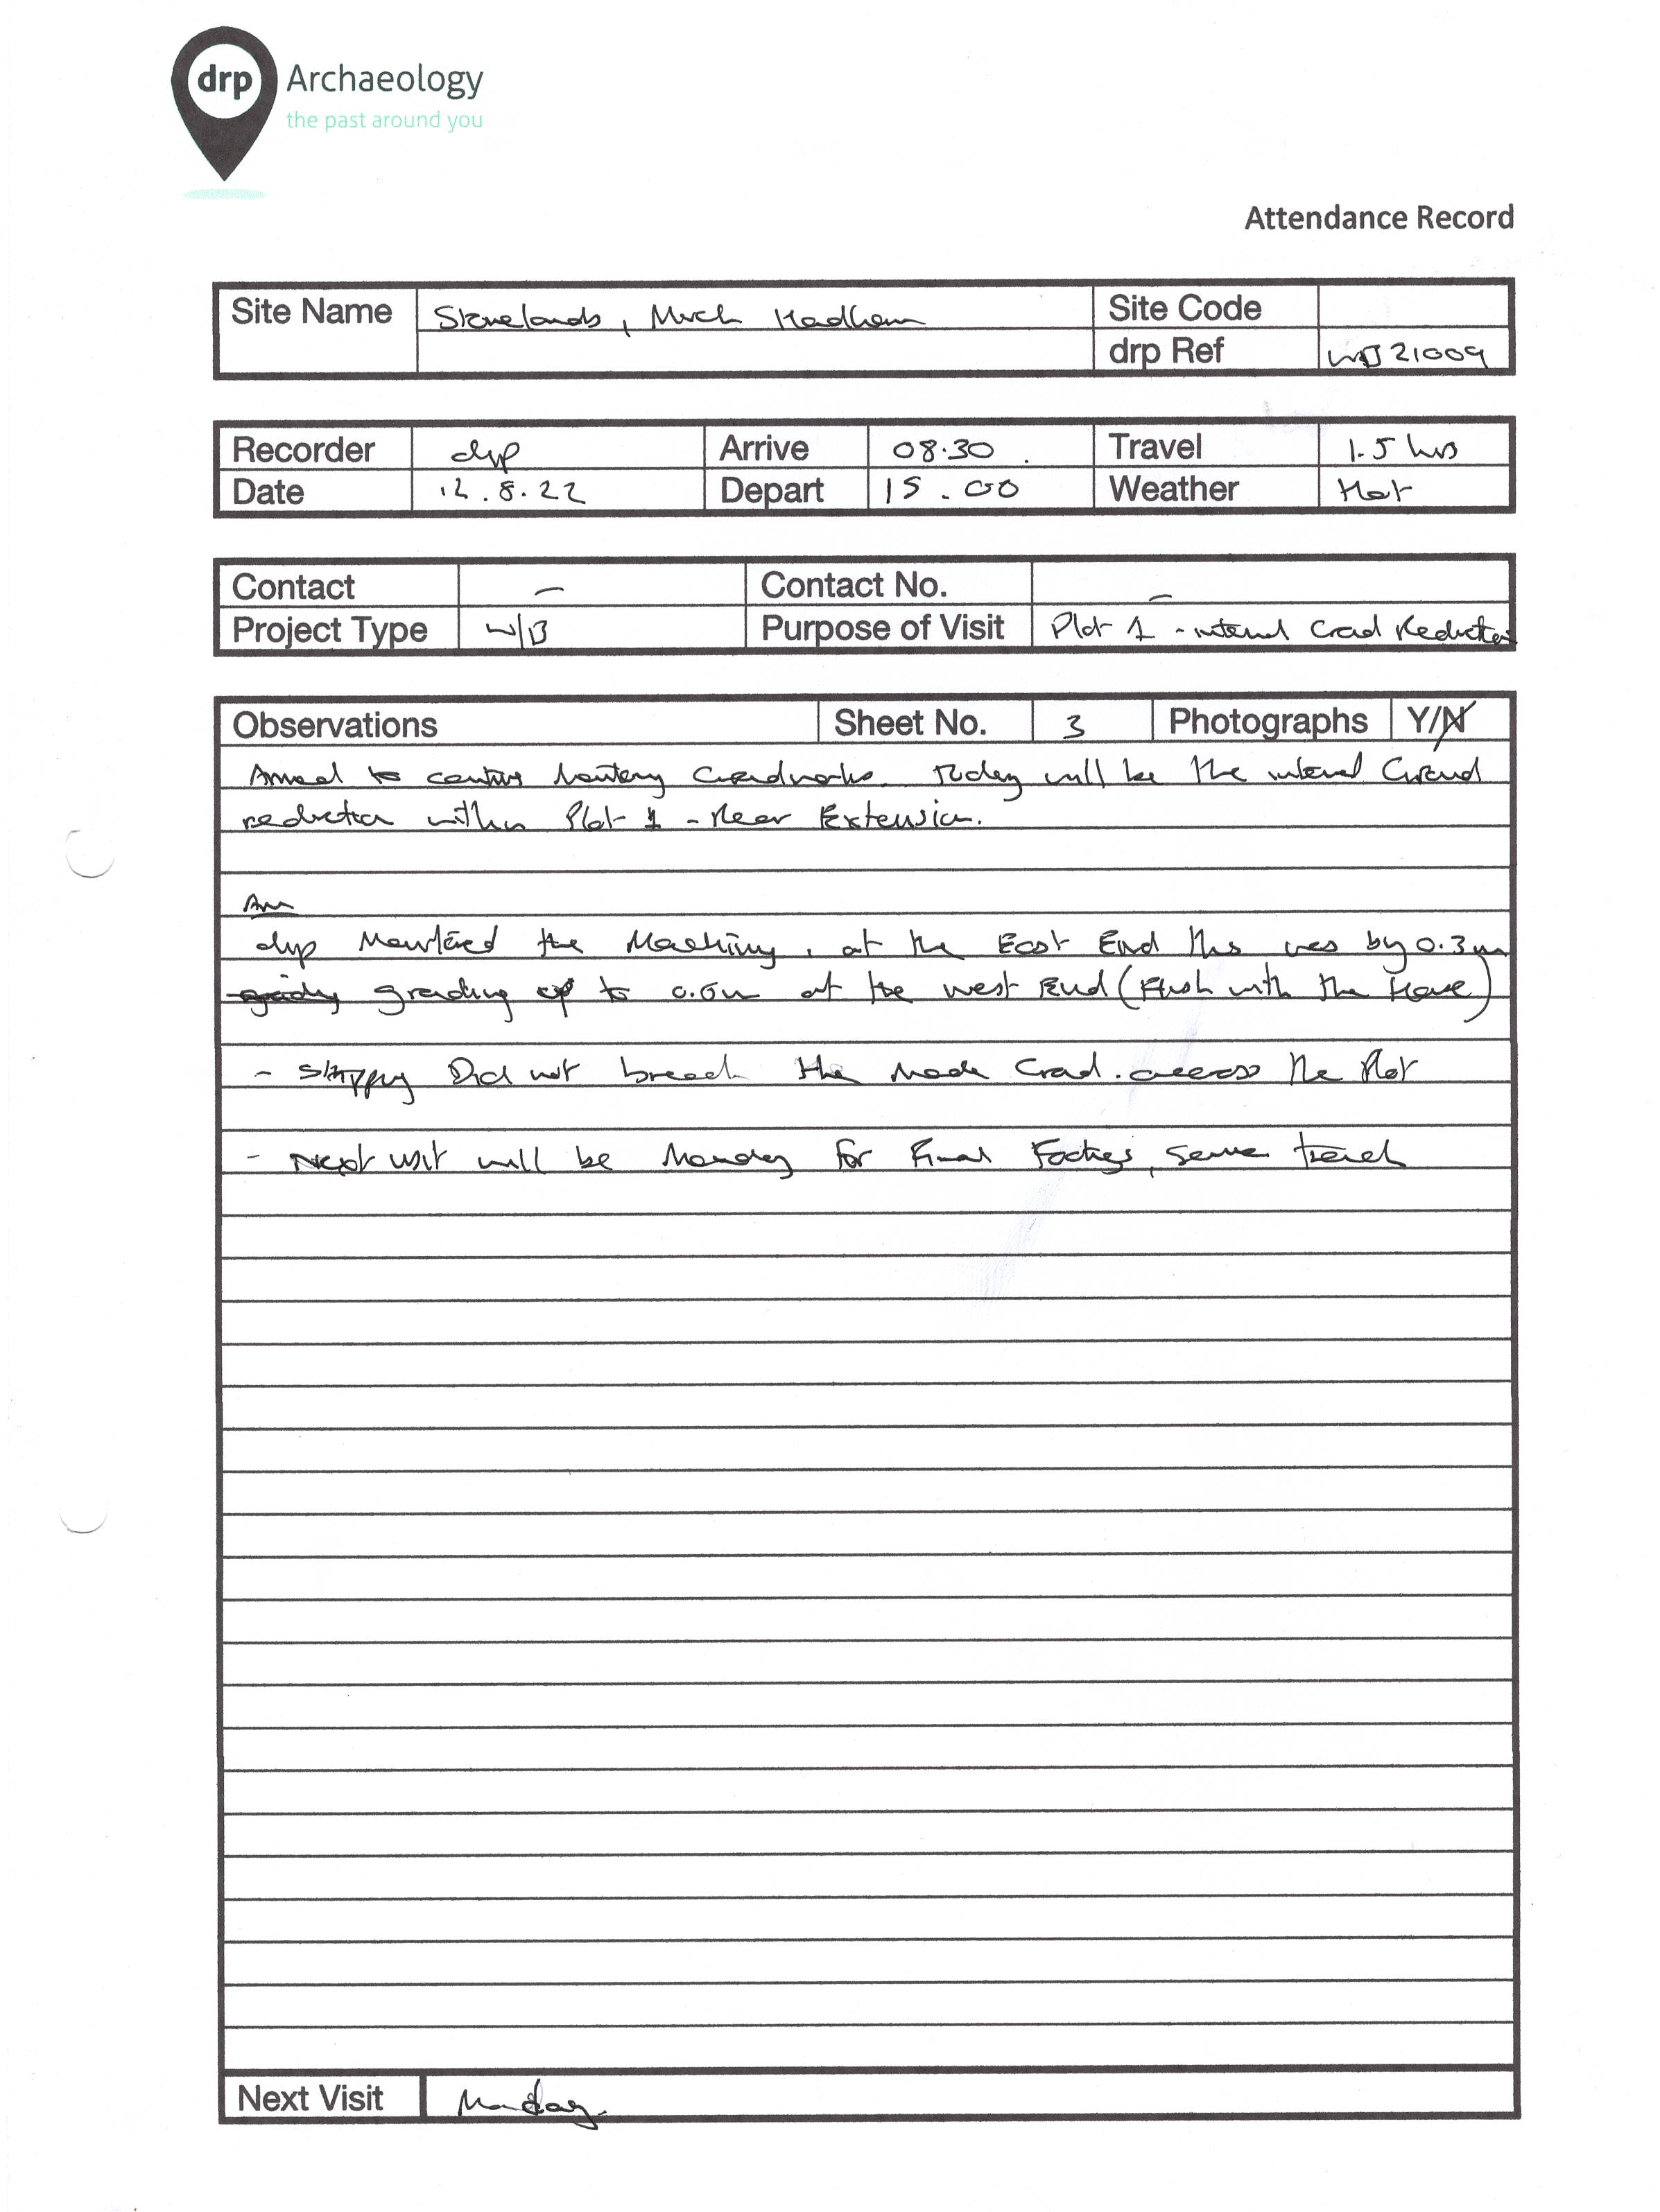 drp Archaeology
the past around you
Attendance Record
Site Name Stonelands, Much Hadham Site Code
drp Ref WB21009
Recorder drp Arrive 08.30 Travel 1.5 hrs
Date 12.8.22 Depart 15.00 Weather Hot
Contact – Contact No. –
Project Type W/B Purpose of Visit Plot 1 - internal Ground Reduction
Observations Sheet No. 3 Photographs Y/N
to continue Groundworks. Today will be the internal Ground
reduction within Plot 1 - Rear Extension.
Am
drp Monitored the Machining, at the East End this was by 0.3m
grading up to at the west End (Flush with the House)
- Stripping Did not breach the Made Ground across the Plot
- Next visit will be Monday for Final Footings, service trench
Next Visit Monday